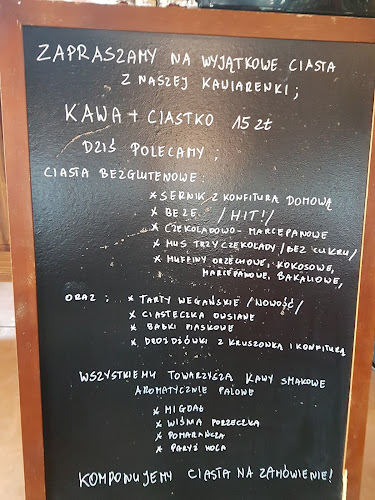 ZAPRASZAMY NA WYJĄTKOWE CIASTA
Z NASZEJ KAWIARENKI;
KAWA + CIASTKO 15 zł
DZIŚ POLECAMY;
CIASTA BEZGLUTENOWE:
* SERNIK Z KONFITURĄ DOMOWĄ
* BEZE /HIT!/
* CZEKOLADOWO-MARCEPANOWE
* MUS TRZY CZEKOLADY /BEZ CUKRU/
* MUFFINY ORZECHOWE, KOKOSOWE,
MARCEPANOWE, BAKALIOWE,
ORAZ: * TARTY WEGAŃSKIE /NOWOŚĆ/
* CIASTECZKA OWSIANE
* BABKI PIASKOWE
* DROŻDŻÓWKI Z KRUSZONKĄ I KONFITURĄ
WSZYSTKIEMU TOWARZYSZĄ KAWY SMAKOWE
AROMATYCZNIE PALONE
* MIGDAŁ
* WIŚNIA PORZECZKA
* POMARAŃCZA
* PARYŻ NOCĄ
KOMPONUJEMY CIASTA NA ZAMÓWIENIE!